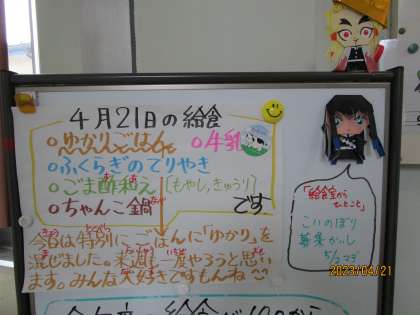 4月21日の給食
ゆかりごはん
牛乳
ふくらぎのてりやき
ごま酢和え(もやし,きゅうり)
ちゃんこ鍋
です
今日は特別にごはんに「ゆかり」を
混ぜました。来週も一度やろうと思い
ます。みんな大好きですもんね
「給食室から
ひとこと」
こいのぼり
募集
5/2マデ
2023/04/21